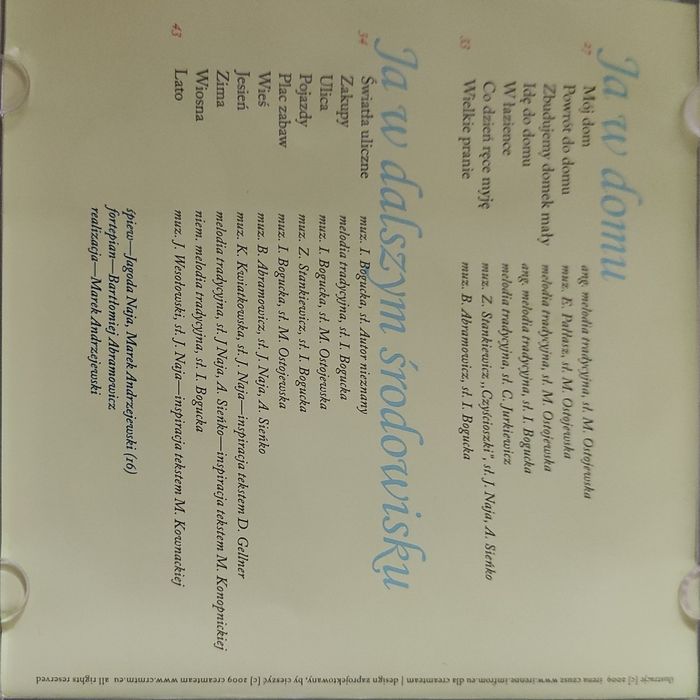 Ja w domu
27 Mój dom ang. melodia tradycyjna, sł. M. Ostojewska
Powrót do domu muz. E. Pałłasz, sł. M. Ostojewska
Zbudujemy domek mały melodia tradycyjna, sł. M. Ostojewska
Idę do domu ang. melodia tradycyjna, sł. I. Bogucka
W łazience melodia tradycyjna, sł. C. Jurkiewicz
Co dzień ręce myję muz. Z. Stankiewicz ,,Czyścioszki", sł. J. Naja, A. Sieńko
33 Wielkie pranie muz. B. Abramowicz, sł. I. Bogucka
Ja w dalszym środowisku
34 Światła uliczne muz. I. Bogucka, sł. Autor nieznany
Zakupy melodia tradycyjna, sł. I. Bogucka
Ulica muz. I. Bogucka, sł. M. Ostojewska
Pojazdy muz. Z. Stankiewicz, sł. I. Bogucka
Plac zabaw muz. I. Bogucka, sł. M. Ostojewska
Wieś muz. B. Abramowicz, sł. J. Naja, A. Sieńko
Jesień muz. K. Kwiatkowska, sł. J. Naja—inspiracja tekstem D. Gellner
Zima melodia tradycyjna, sł. J Naja, A. Sieńko—inspiracja tekstem M. Konopnickiej
Wiosna niem. melodia tradycyjna, sł. I. Bogucka
43 Lato muz. J. Wesołowski, sł. J. Naja—inspiracja tekstem M. Kownackiej
śpiew—Jagoda Naja, Marek Andrzejewski (16)
fortepian—Bartłomiej Abramowicz
realizacja—Marek Andrzejewski
ilustracje [c] 2009 irena czusz www.irenne.imfrom.eu dla creamteam | design zaprojektowany, by cieszyć [c] 2009 creamteam www.crmtm.eu all rights reserved